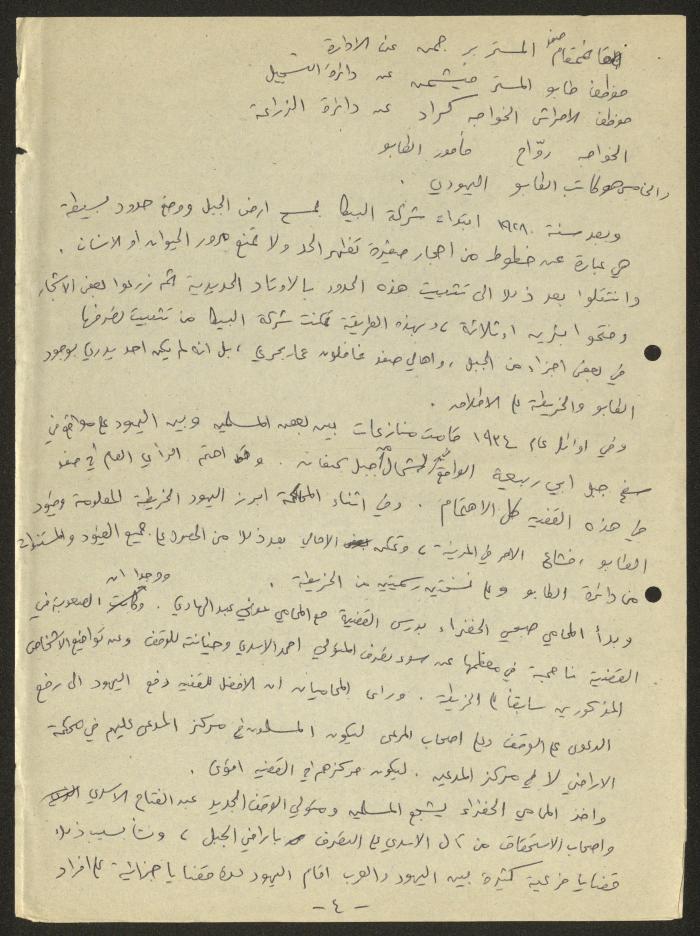 القائمقام صفد المستر بر جمن عن الادارة
موظف طابو المستر فيشمن عن دائرة التسجيل
موظف الاحراش الخواجه كراد عن دائرة الزراعة
الخواجه روّاح مأمور الطابو
والخامس هو كاتب الطابو اليهودي .
وبعد سنة ١٩٢٨ ابتدات شركة البيكا بمسح ارض الجبل ووضع حدود بسيطة
هي عبارة عن خطوط من احجار صغيرة تظهر الحد ولا تمنع مرور الحيوان او الانسان .
وانتقلوا بعد ذلك الى تثبيت هذه الحدود بالاوتاد الحديدية ثم زرعوا بعض الاشجار
وفتحوا بئرين او ثلاثة ، وبهذه الطريقة تمكنت شركة البيكا من تثبيت تصرفها
في بعض اجزاء من الجبل ، واهالي صفد غافلون عما يجري ، بل انه لم يكن احد يدري بوجود
الطابو والخريطة على الاطلاق .
وفي اوائل عام ١٩٣٤ قامت منازعات بين بعض المسلمين وبين اليهود على مواقع في
سفح جبل ابي ربيعة الواقع الى الشمال من جبل كنعان . وقد اهتم الرأي العام في صفد
في هذه القضية كل الاهتمام . وفي اثناء المحاكمة ابرز اليهود الخريطة المعلومة وقيود
الطابو ، فشاع الامر في المدينة ، وتمكن الاهالي بعد ذلك من الحصول على جميع القيود والمستندات
من دائرة الطابو وعلى نسختين رسميتين من الخريطة .
وبدأ المحامي صبحي الخضراء بدرس القضية مع المحامي عوني عبد الهادي . ووجدا ان الصعوبة في
القضية ناجمة في معظمها عن سوء تصرف المتولي احمد الاسدي وخيانته للوقف وعن تواقيع الاشخاص
المذكورين سابقاً على الخريطة . ورأى المحاميان ان الافضل للقضية دفع اليهود الى رفع
الدعوى على الوقف وعلى اصحاب المرعى ليكون المسلمون في مركز المدعى عليهم في محكمة
الاراضي لا في مركز المدعين . ليكون مركزهم في القضية اقوى .
واخذ المحامي الخضراء يشجع المسلمين ومتولي الوقف الجديد عبد الفتاح الاسدي
واصحاب الاستحقاق من آل الاسدي على التصرف باراضي الجبل ، ونشأ بسبب ذلك
قضايا فرعية كثيرة بين اليهود والعرب اقام اليهود عدة قضايا جزائية على افراد
- ٤ -